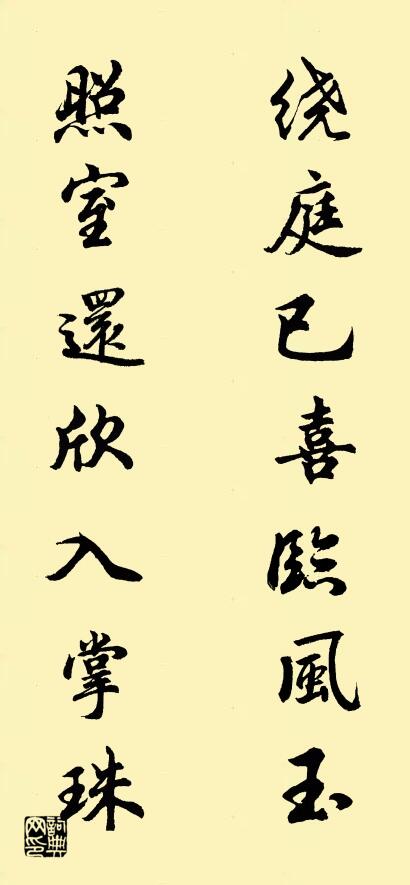 绕庭已喜臨風玉
照室還欣入掌珠
詞典网印